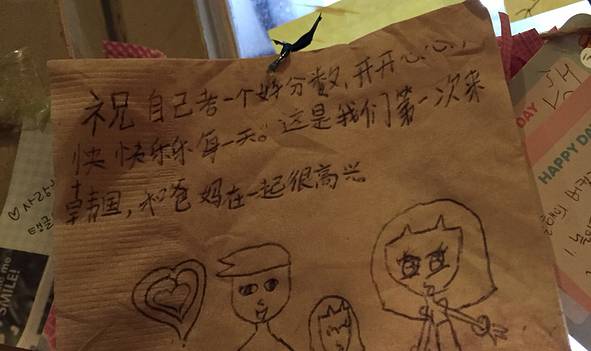 祝自己考一个好分数,开开心心,
快快乐乐每一天。这是我们第一次来
韩国,和爸妈在一起很高兴
♡사랑
me
SMILE!
DAY
HAPPY DAY